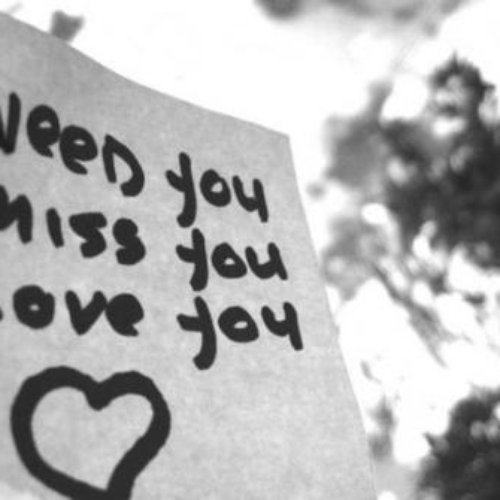 Need you
Miss you
Love you